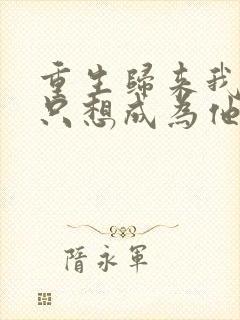 重生歸來我
只想成為他
隋永軍